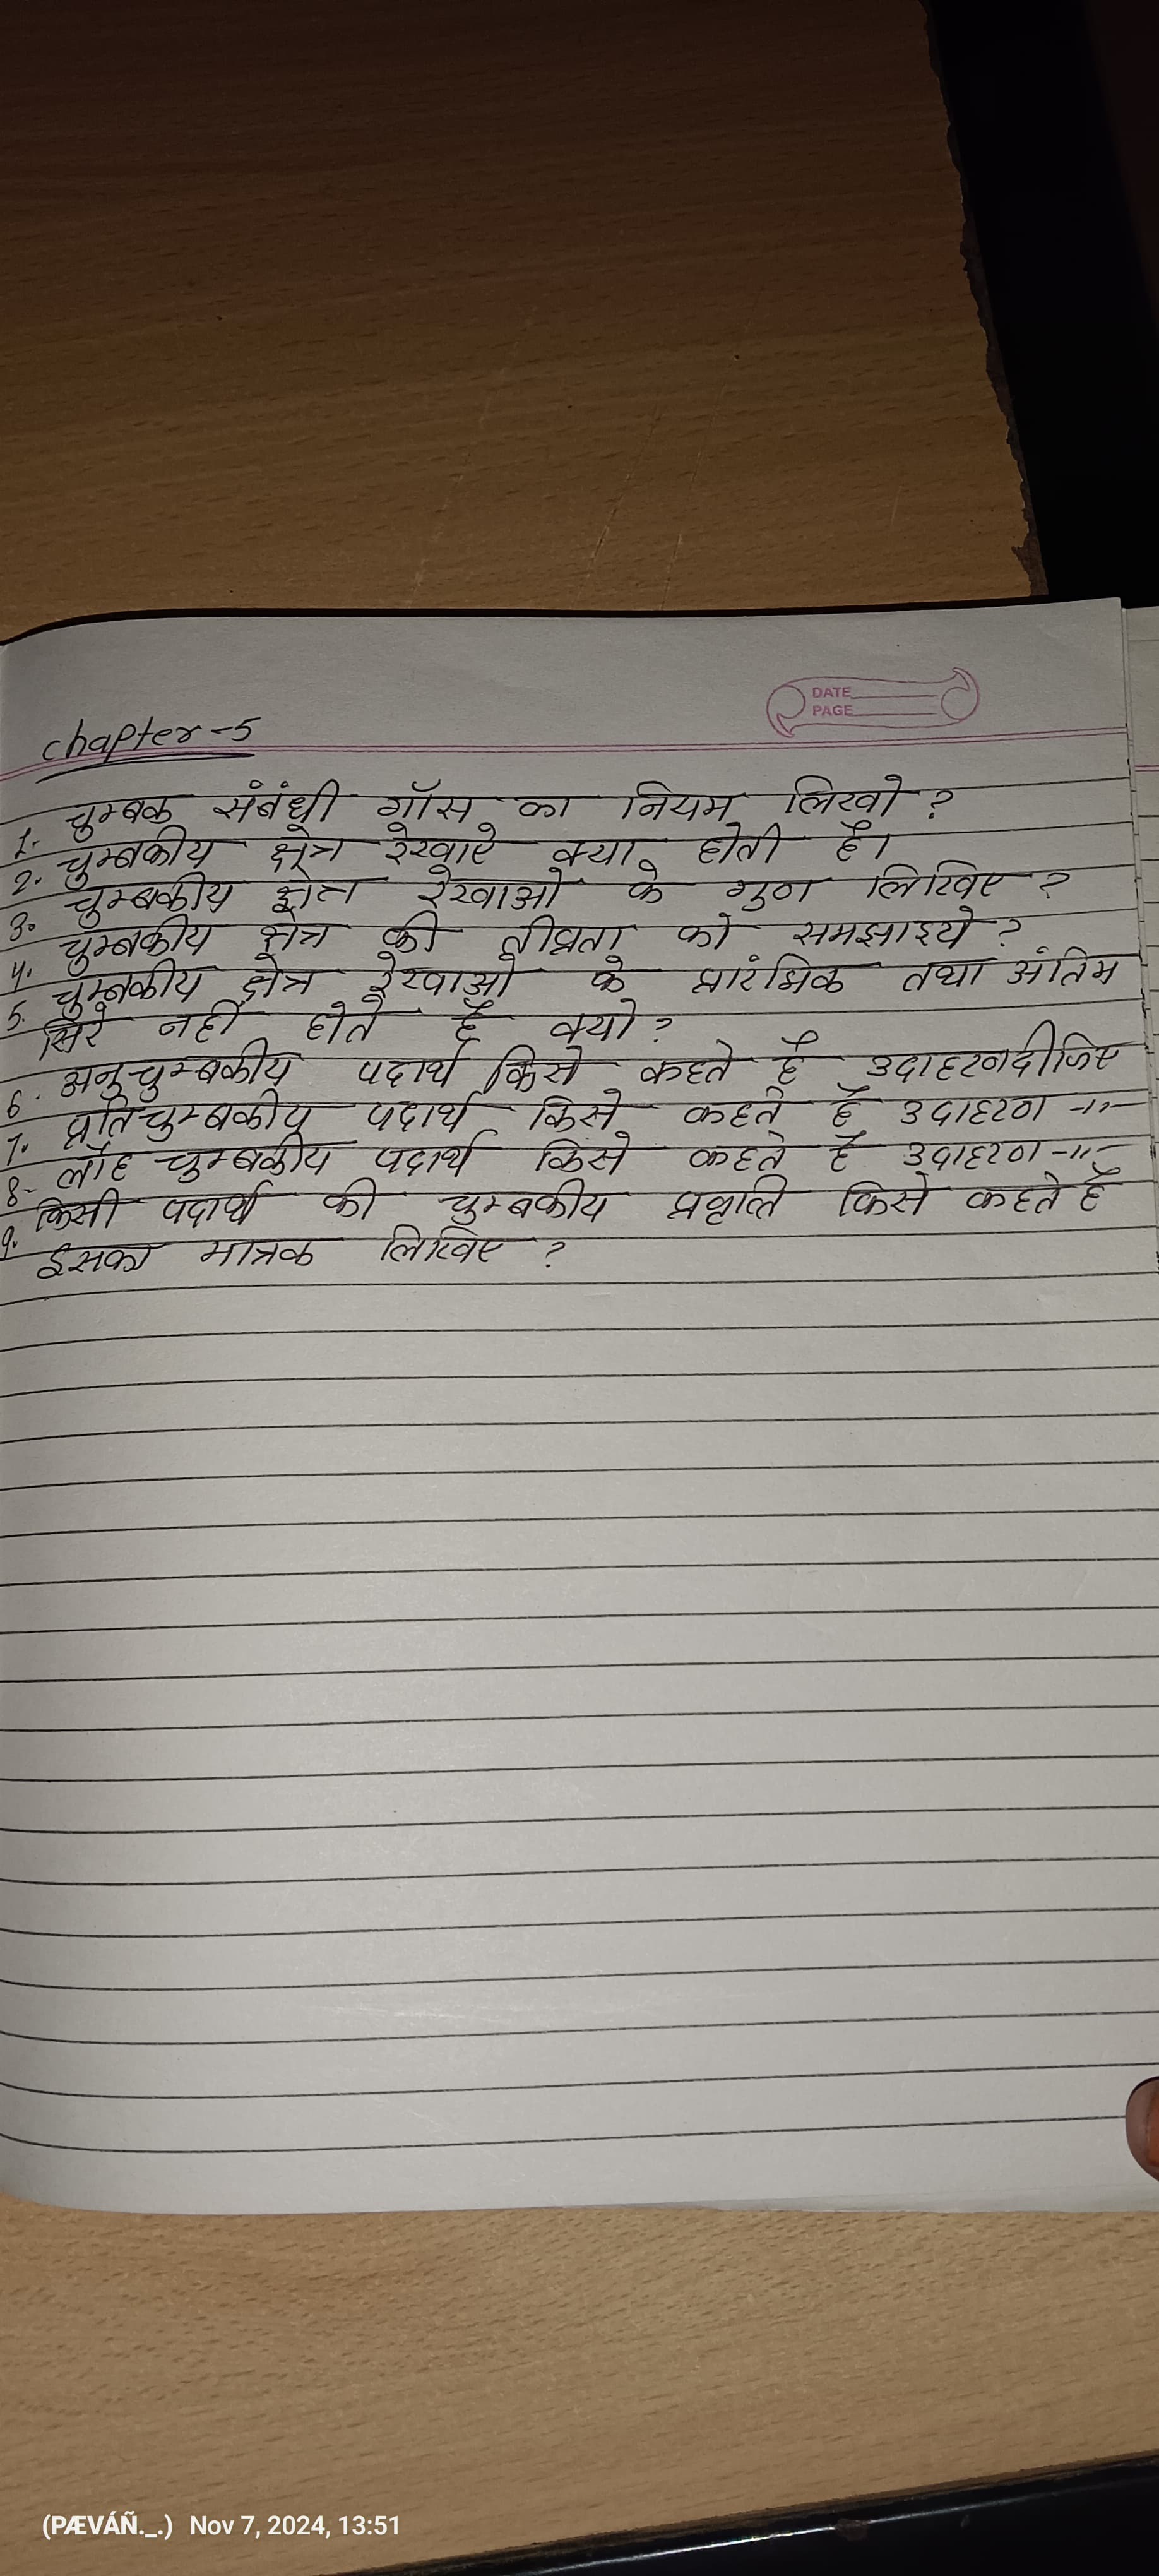 DATE
PAGE
chapter-5
1. चुम्बक संबंधी गॉस का नियम लिखो ?
2. चुम्बकीय क्षेत्र रेखाऐ क्या होती है।
3. चुम्बकीय क्षेत्र रेखाओं के गुण लिखिए ?
4. चुम्बकीय क्षेत्र की तीव्रता को समझाइये ?
5. चुम्बकीय क्षेत्र रेखाओ के प्रारंभिक तथा अंतिम
सिरे नहीं होते हैं क्यो ?
6. अनुचुम्बकीय पदार्थ किसे कहते है उदाहरण दीजिए
7. प्रतिचुम्बकीय पदार्थ किसे कहते हैं उदाहरण -"-
8- लौह चुम्बकीय पदार्थ किसे कहते हैं उदाहरण -"-
9. किसी पदार्थ की चुम्बकीय प्रवृत्ति किसे कहते हैं
इसका मात्रक लिखिए ?
(PÆVÁÑ._.) Nov 7, 2024, 13:51